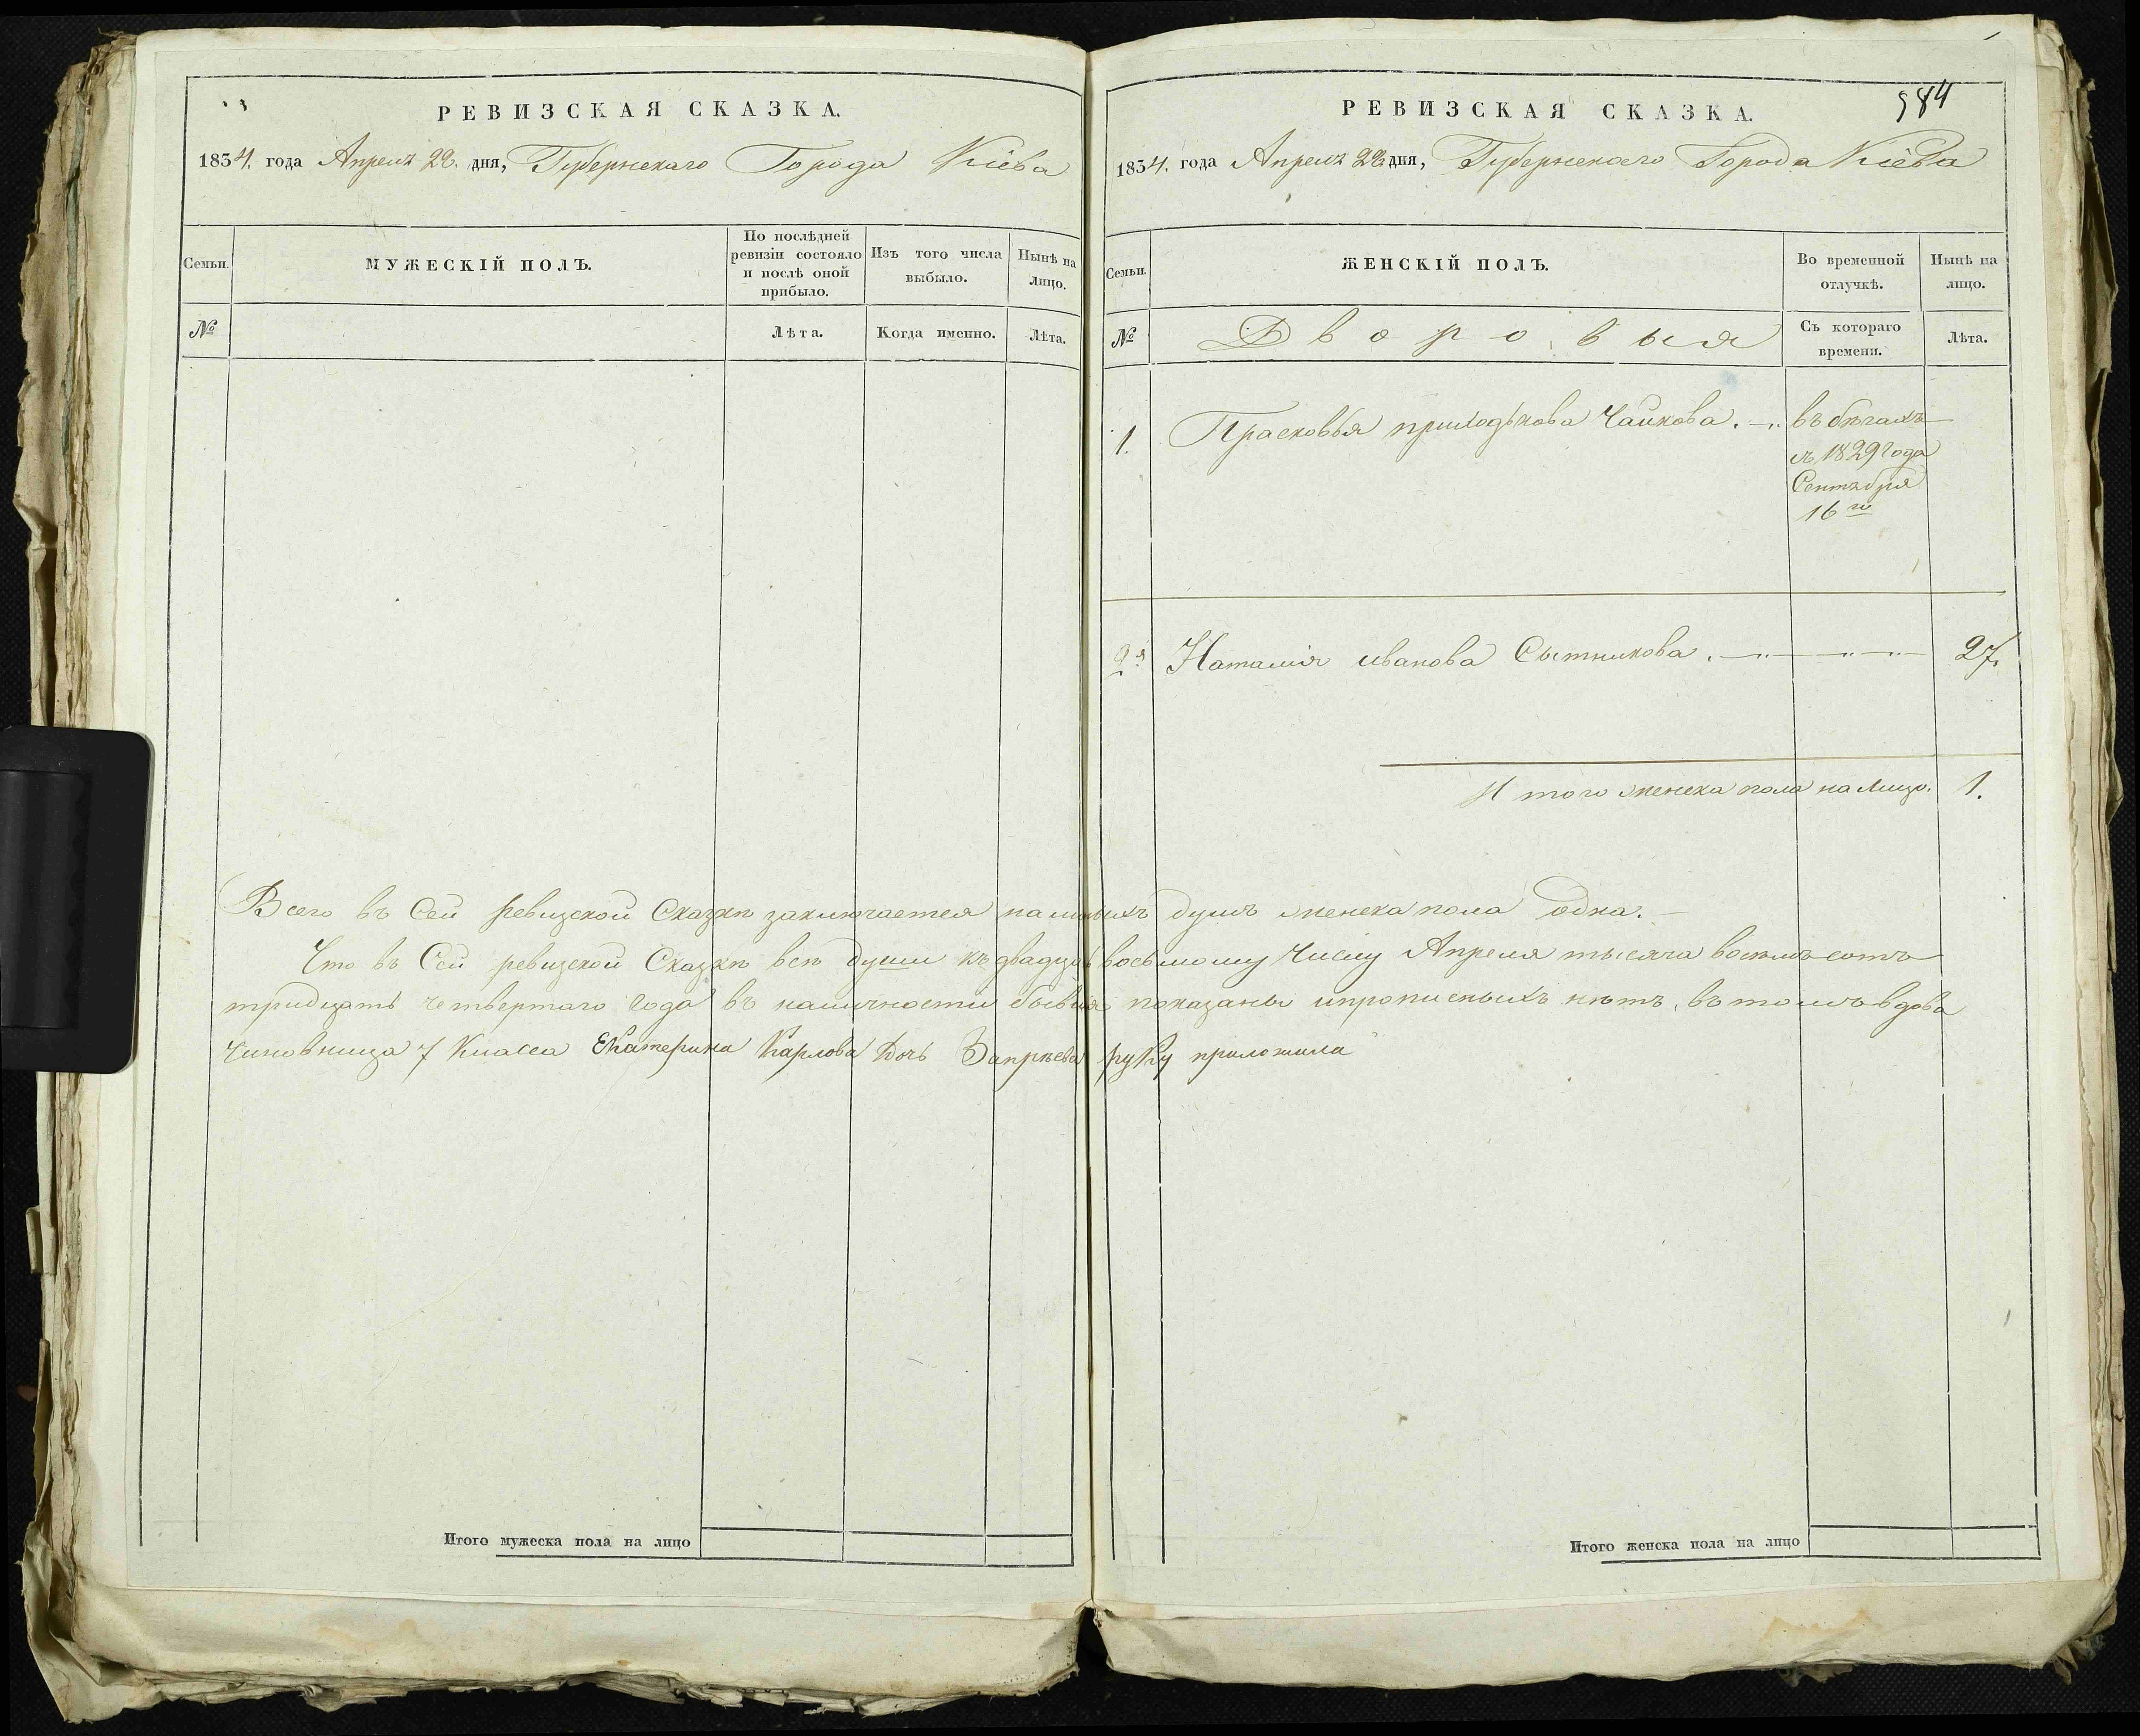 РЕВИЗСКАЯ СКАЗКА.
1834. года Апреля 28. дня, Губернскаго Города Кіева
Семьи.
МУЖЕСКІЙ ПОЛЪ.
По послѣдней ревизіи состояло и послѣ оной прибыло.
Изъ того числа выбыло.
Нынѣ на лицо.
№
Лѣта.
Когда именно.
Лѣта.
984
РЕВИЗСКАЯ СКАЗКА.
1834. года Апреля 28 дня, Губернскаго Города Кіева
Семьи.
ЖЕНСКІЙ ПОЛЪ.
Во временной отлучкѣ.
Нынѣ на лицо.
№
Дворовыя
Съ котораго времени.
Лѣта.
1. Прасковья приходькова Чайкова. въ бѣгахъ
съ 1829 года
Сентября
16го
2я Наталія иванова Сытникова. 27.
И того женска пола на Лицо. 1.
Всего въ Сей ревизской Сказкѣ заключается наличныхъ душъ женска пола одна.
Что въ Сей ревизской Сказкѣ всѣ души къ двадцать восьмому Числу Апреля тысяча восемь сотъ
тридцать четвертаго года въ наличности бывшія показаны и прописныхъ нѣтъ, въ томъ вдова
Чиновница 7 Класса Екатерина Карлова Дочь руку приложила
Итого мужеска пола на лицо
Итого женска пола на лицо